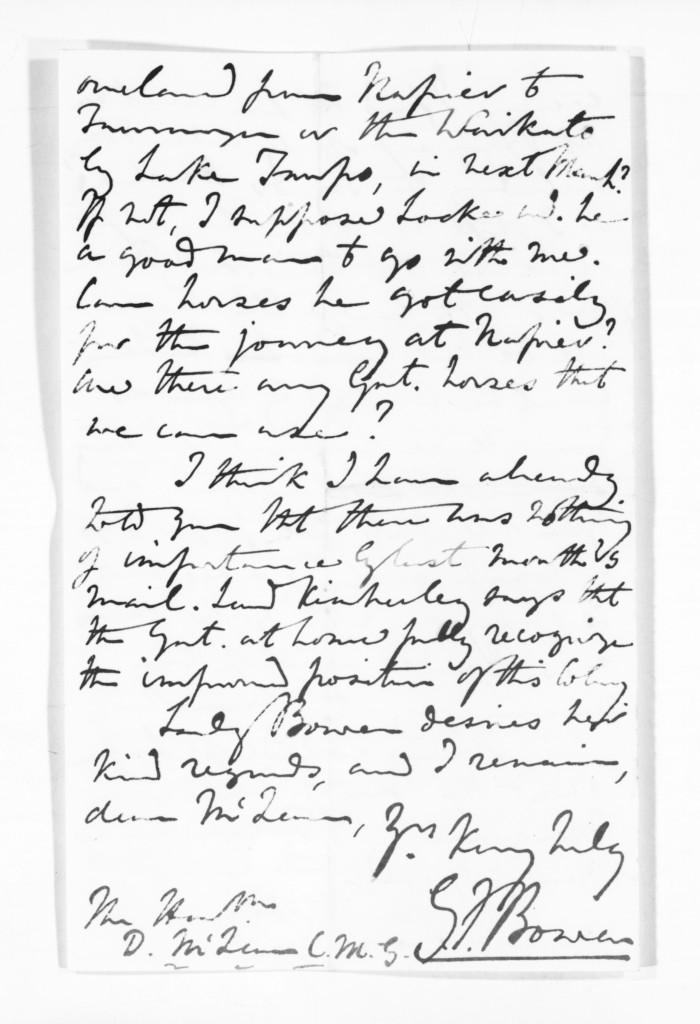 overland from Napier to
Tauranga or the Waikato
by Lake Taupo, in next March?
If not, I suppose Locke wd. be
a good man to go with me.
Can horses be got easily
for the journey at Napier?
Are there any Govt. horses that
we can use?
I think I have already
told you that there was nothing
of importance by last month's
mail. Lord Kimberley says that
the Govt. at home fully recognize
the improved position of this Colony
Lady Bowen desires her
kind regards, and I remain,
dear McLean, Yrs very truly
G.F. Bowen
The Honble
D. McLean C.M.G.